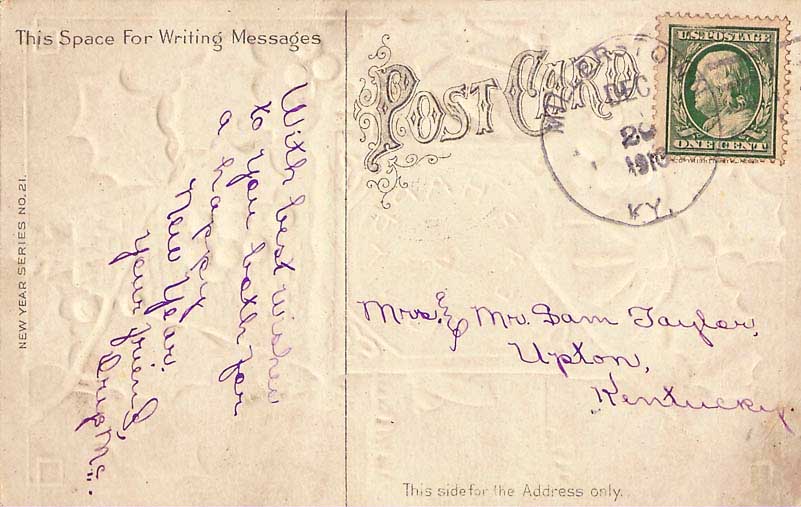 This Space For Writing Messages
NEW YEAR SERIES NO. 21.
With best wishes
to you both for
a happy
New Year.
Your friend,
POST CARD
DEC
26
KY.
U.S. POSTAGE
ONE CENT
Mrs. & Mr. Sam Taylor,
Upton,
Kentucky.
This side for the Address only.